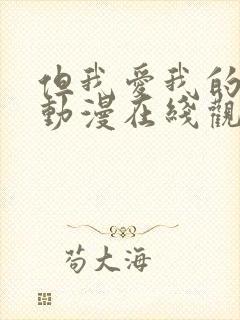 但我愛我的
動漫在綫觀
苟大海